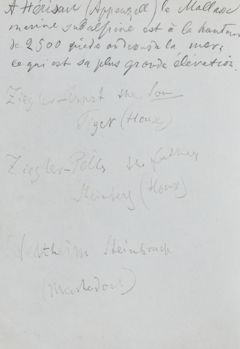 A Hérisau (Appenzell) la Mollasse
marine subalpine est à la hauteur
de 2500 pieds au dessus de la mer;
ce qui est sa plus grande élévation.
Ziegler-Ernst the Son
(Houx)
Ziegler-Pellis the father
Steinberg (Houx)
Steinbruch